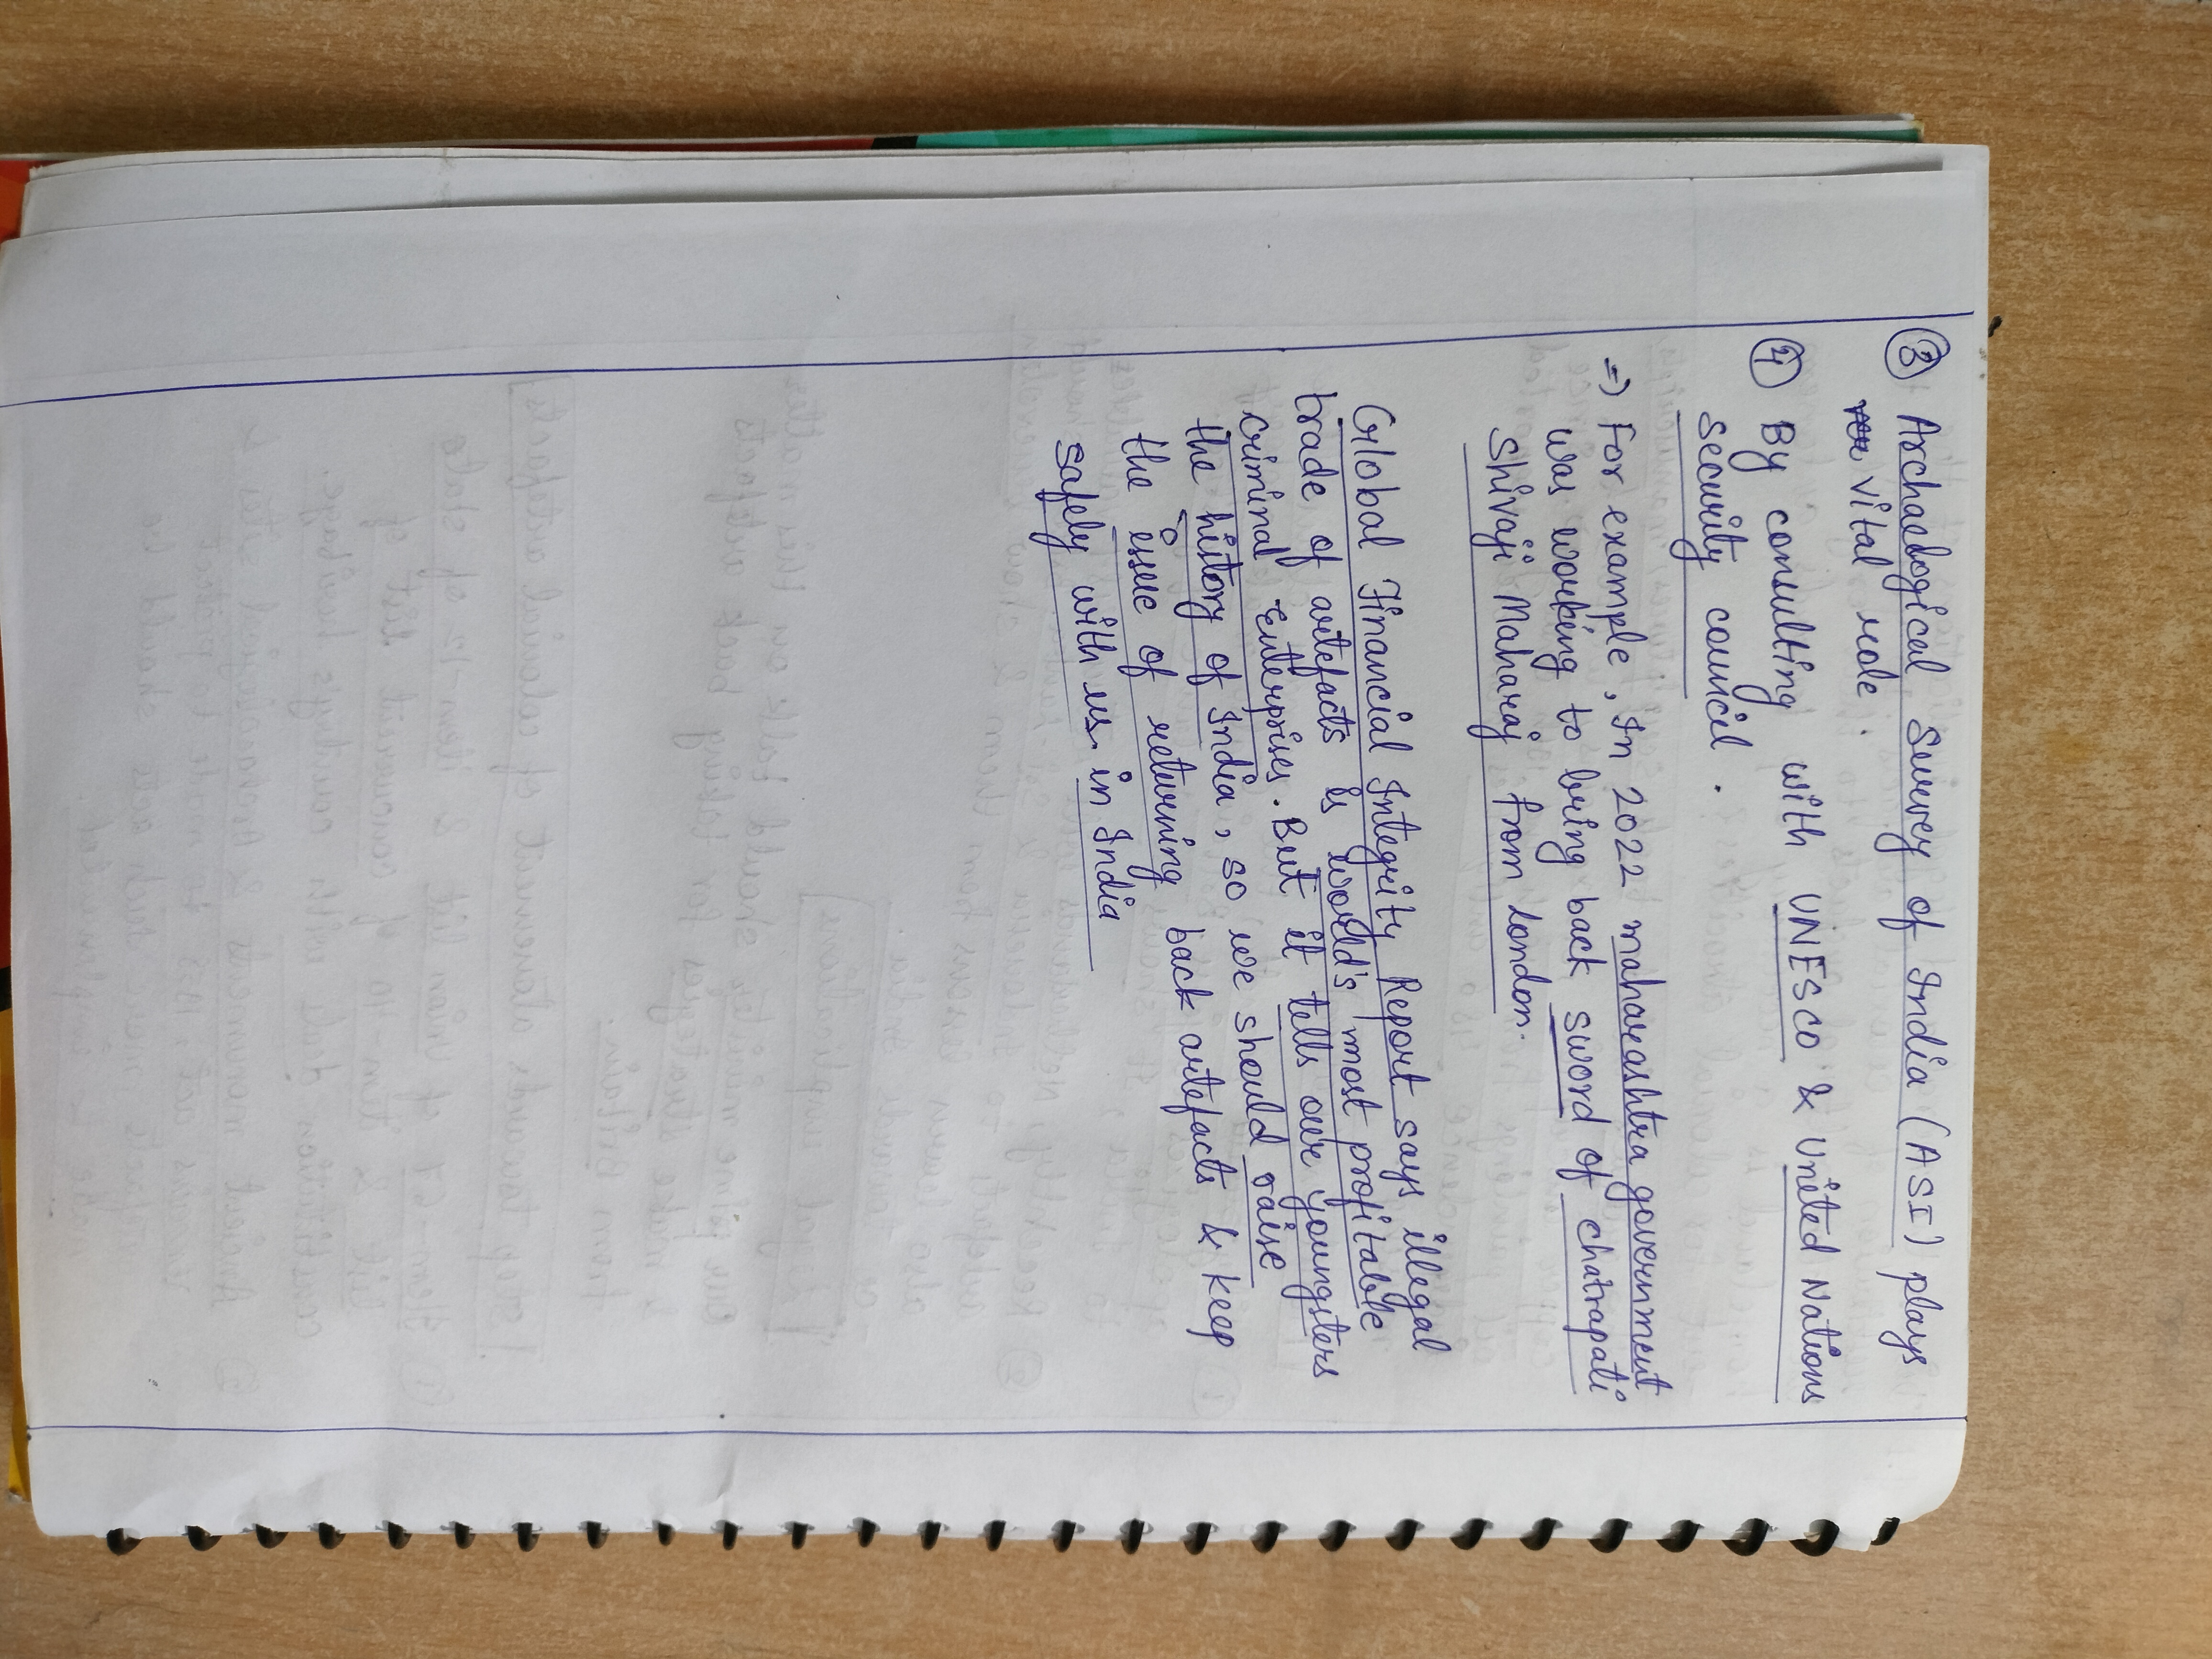 ③ Archaelogical Survey of India (ASI) plays
vital role.
④ By consulting with UNESCO & United Nations
security council.
=) For example, In 2022 maharashtra government
was working to bring back sword of chatrapati
Shivaji Maharaj from London.
Global Financial Integrity Report says illegal
trade of artefacts is world's most profitable
criminal Enterprises. But it tells our youngsters
the history of India, so we should raise
the issue of returning back artefacts & keep
safely with us in India